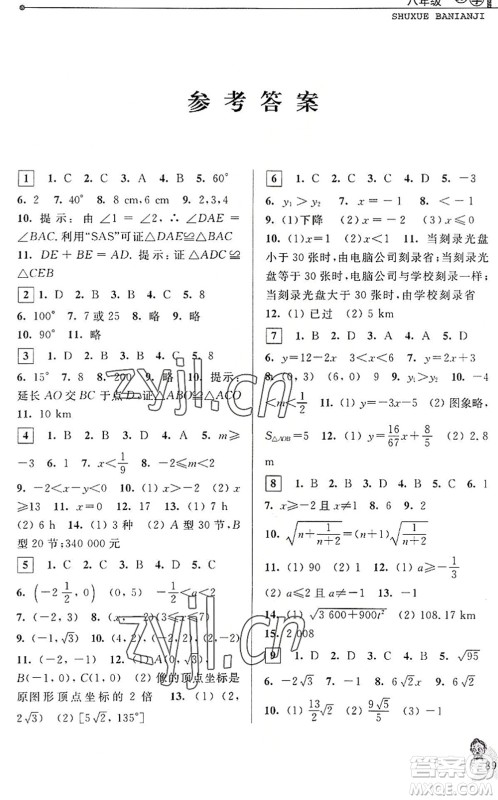 八年级
SHUXUE BANIANJI
参考答案
1 1. C 2. C 3. A 4. B 5. 60°
6. 2 7. 40° 8. 8 cm,6 cm 9. 2,3,4
10. 提示：由∠1 = ∠2，∴ ∠DAE =
∠BAC. 利用“SAS”可证△DAE≌△BAC
11. DE + BE = AD. 提示：证△ADC≌
△CEB
2 1. D 2. B 3. D 4. C 5. 8
6. 100° 7. 7 或 25 8. 略 9. 略
10. 90° 11. 略
3 1. D 2. B 3. C 4. C 5. 8
6. 15° 7. 8 8. 200 9. 略 10. 提示：
延长 AO 交 BC 于点 D. 证△ABO≌△ACO
11. 10 km
4 1. B 2. B 3. A 4. D 5. m≥
−3 6. 1 7. x<1/9 8. −2≤m<2
9. −2<x<−1 10. (1) x>−2 (2) x
≥13 (2) 6 h 14. (1) 3 种 (2) A 型 30 节,B
型 20 节；340 000 元
5 1. D 2. A 3. D 4. C 5. C
6. (−2 1/2, 0) (0, 5) −1/2<a<2
9. (−2, −√3) 10. (−1, √3)
11. (−2, −1)
B(−1, 0) (2) 他的顶点坐标是
原图形顶点坐标的 2 倍 13. (1) (2,
2√3) (2) [5√2, 135°]
6 1. C 2. C 3. A 4. D 5. −1
6. y₁>y₂ 7. x<1 8. m<−1
9. (1) 下降 (2) x<2 (3) x≤0
10. (1) x>1 (2) x<1 11. 当刻录光盘
小于 30 张时，由电脑公司刻录省；当刻录光
盘等于 30 张时，由电脑公司与学校刻录一样；
当刻录光盘大于 30 张时，由学校刻录省
12. (1) 已过 (2) 5 km
7 1. B 2. C 3. C 4. A 5. D
6. y=12−2x 3<x<6 7. y=−2x−1
8. (0, 3) 9. y₁>y₂ 10. −4
<m<1/2 11. (1) y=−3x (2) 图象略,
S△AOB=5 12. (1) y=16/67 x+8/5 (2) 2.8
m
8 1. B 2. B 3. C 4. D 5. C
7. x≥−2 且 x≠1 8. 6 9. 2
10. √(n+1/(n+2))=(n+1)√(1/(n+2))
11. (1) 90 (2) 1 12. (1) a≥−1/3
(2) a≤2 且 a≠1 13. −1
14. (1) √(3 600+900t²) (2) 108.17 km
15. 2 008
9 1. D 2. C 3. B 4. C 5. √95
6. −2√3 7. −1 8. 6√2 9. 6√2
10. (1) √6/6 (2) 9√5/5 (3) −√2/4
89
zyjl.cn
zyjl.cn
答案圈
MXQE.COM